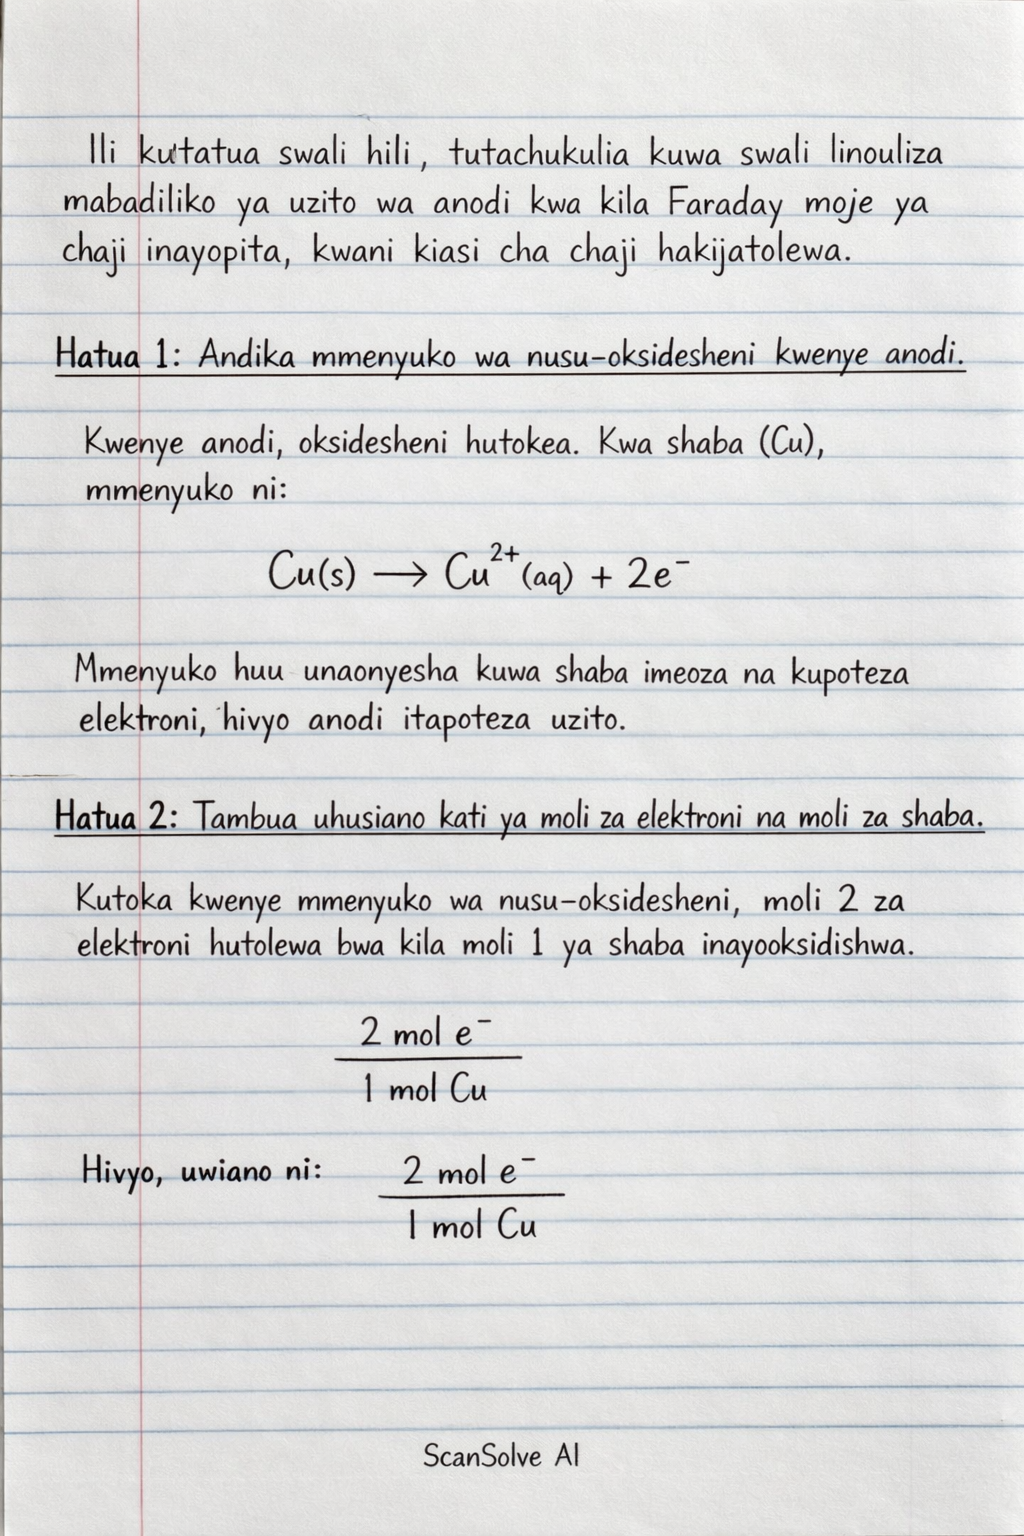 Ili kutatua swali hili, tutachukulia kuwa swali linouliza
mabadiliko ya uzito wa anodi kwa kila Faraday moje ya
chaji inayopita, kwani kiasi cha chaji hakijatolewa.
Hatua 1: Andika mmenyuko wa nusu-oksidesheni kwenye anodi.
Kwenye anodi, oksidesheni hutokea. Kwa shaba (Cu),
mmenyuko ni:
Cu(s) → Cu²⁺(aq) + 2e⁻
Mmenyuko huu unaonyesha kuwa shaba imeoza na kupoteza
elektroni, hivyo anodi itapoteza uzito.
Hatua 2: Tambua uhusiano kati ya moli za elektroni na moli za shaba.
Kutoka kwenye mmenyuko wa nusu-oksidesheni, moli 2 za
elektroni hutolewa bwa kila moli 1 ya shaba inayooksidishwa.
2 mol e⁻
1 mol Cu
Hivyo, uwiano ni: 2 mol e⁻
1 mol Cu
ScanSolve AI